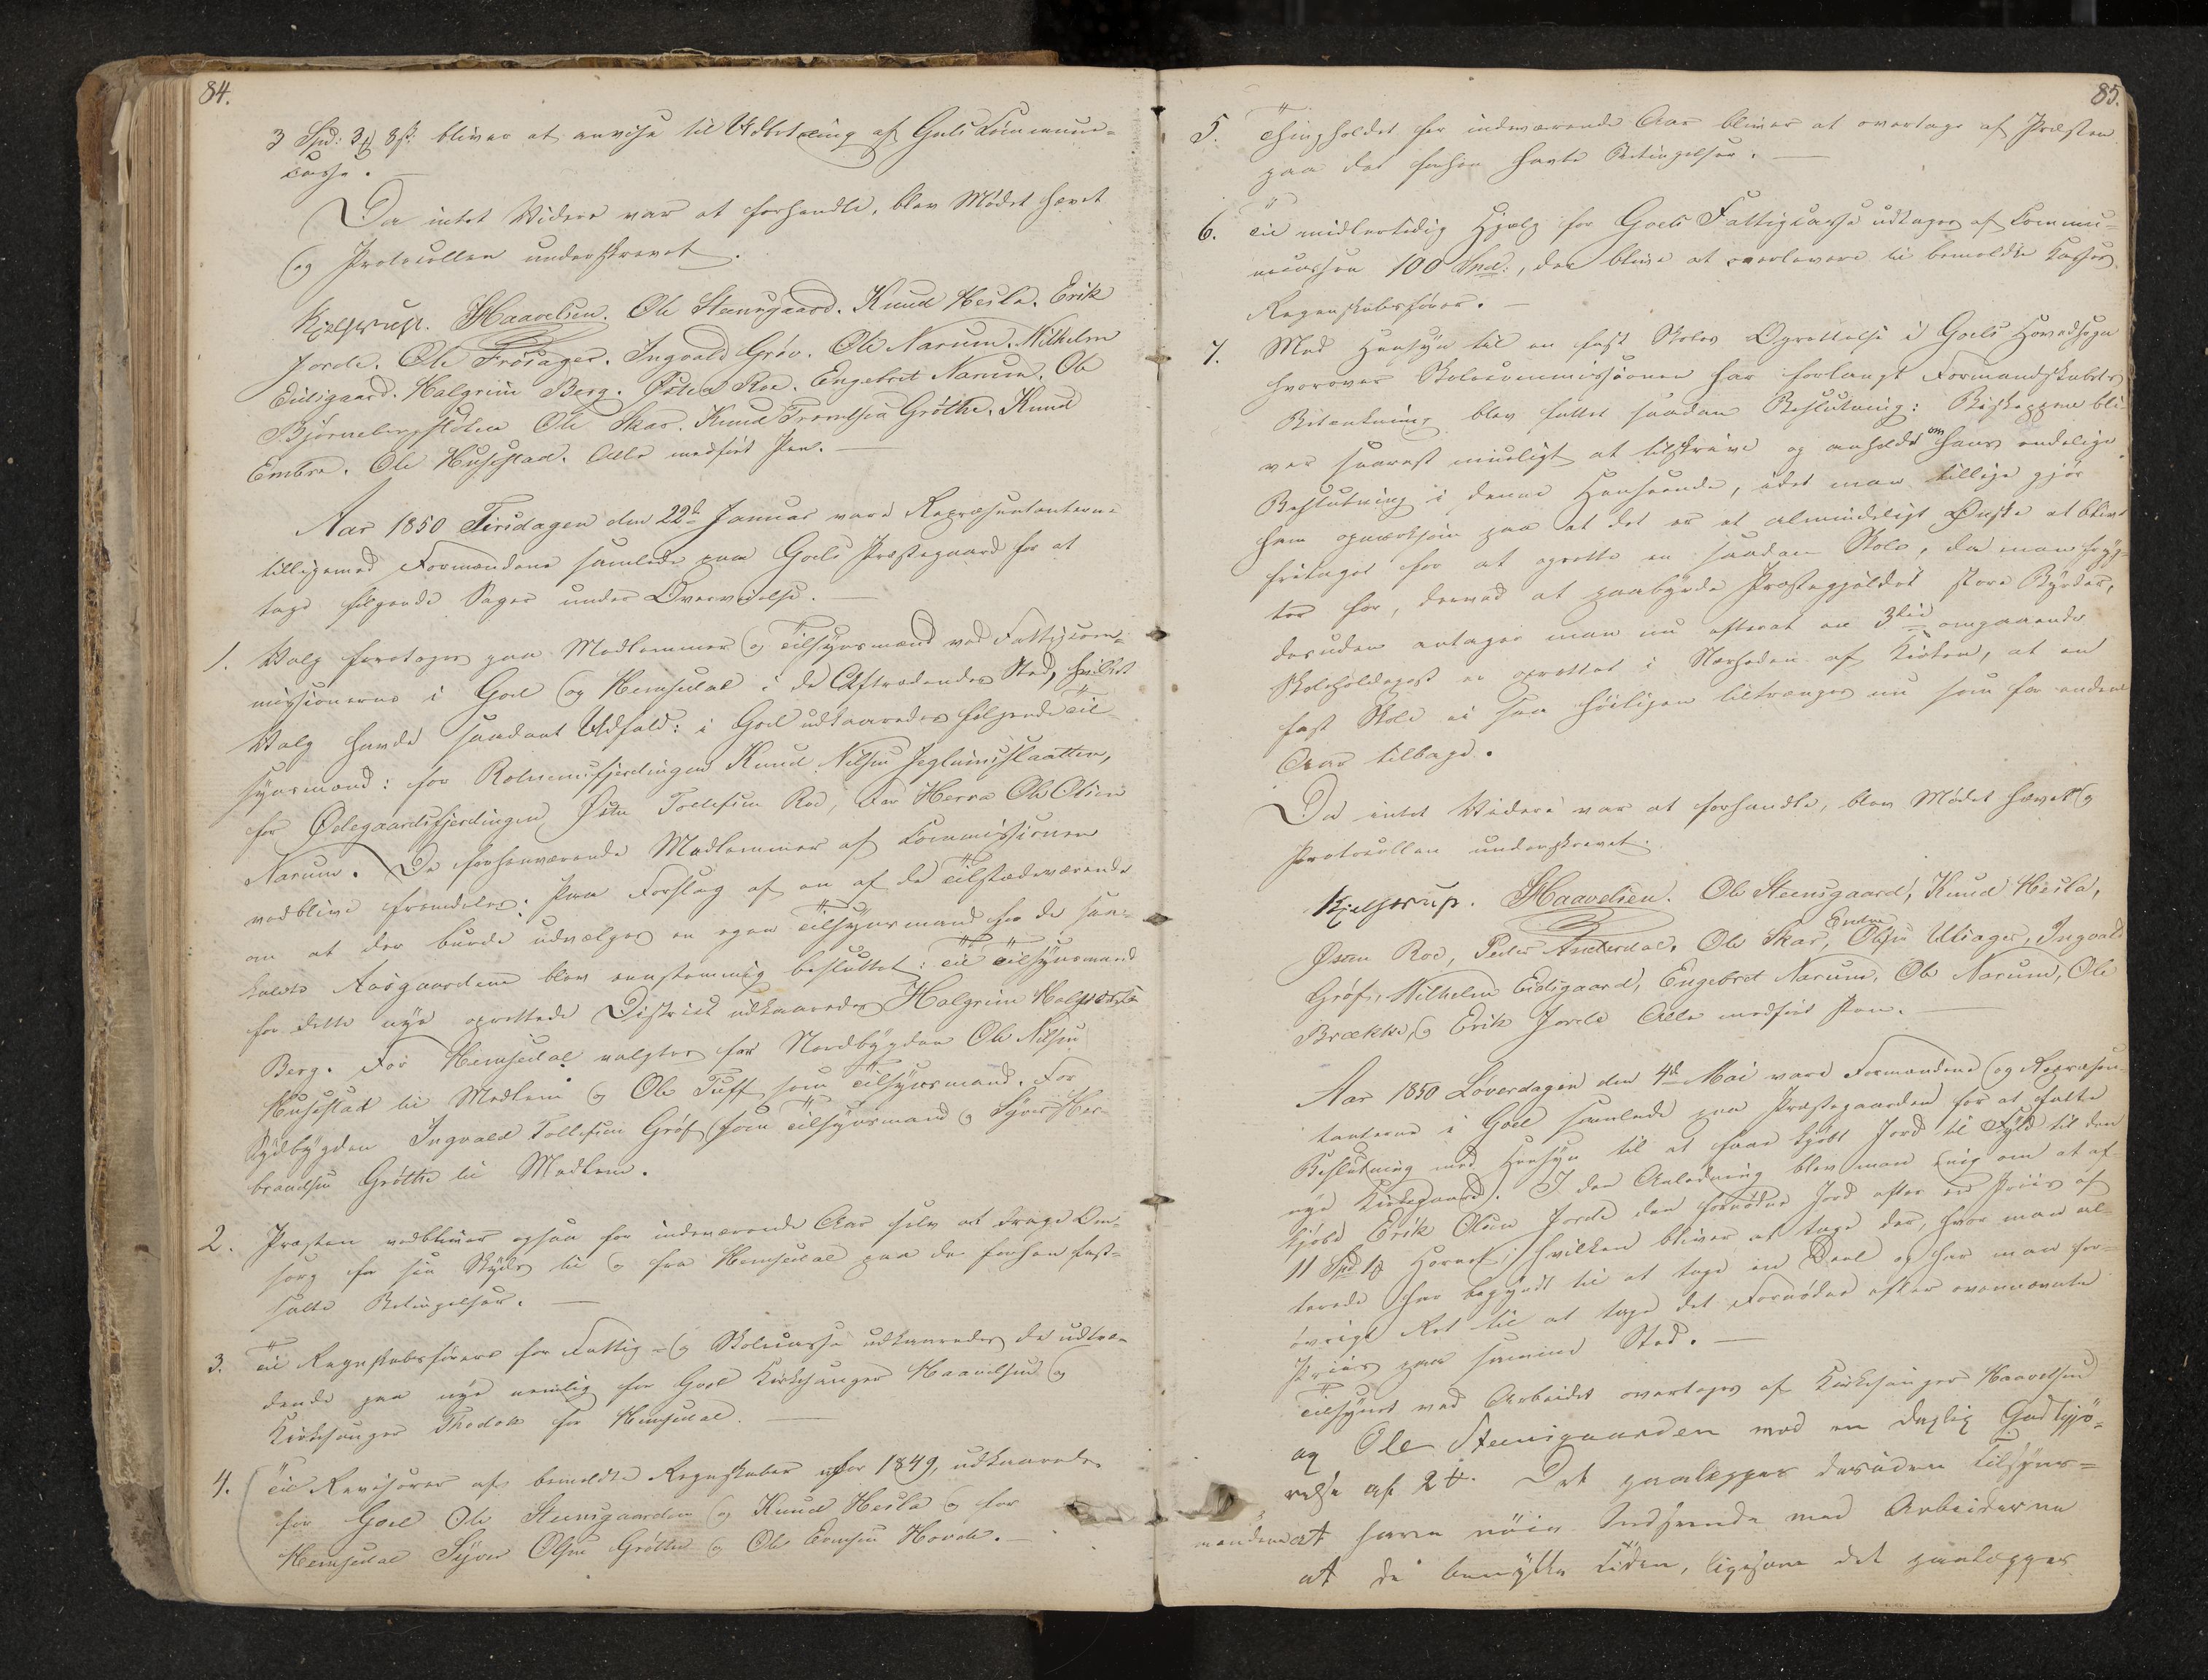 84.
3 Spd: 3 ß 8 s: bliver at anvise til Udbetaling af Gols Commune-
casse. —
Da intet Videre var at forhandle, blev Mødet hævet
og Protocollen underskrevet.
Kjelstrup. Haavelsen. Ole Steensgaard. Knud Hesla. Erik
Jorde. Ole Frøsager. Ingvald Grøv. Ole Narum. Wilhelm
Eidsgaard. Halgrim Berg. Østen Roe. Engebret Narum. Ole
Bjørnebergstølen Ole Skar. Knud Grøthe. Knud
Embre. Ole Husestad. Alle medført Pen. —
Aar 1850 Tirsdagen den 22de Januar vare Repræsentanterne
tilligemed Formændene samlede paa Goels Præstegaard for at
tage følgende Sager under Overveielse. —
1. Valg foretoges paa Medlemmer og Tilsynsmænd ved Fattigcom-
missionerne i Goel og Hemsedal i de Aftrædendes Sted, hvilket
Valg havde saadant Udfald: i Goel udkaaredes følgende Til-
synsmænd: for Rotnemsfjerdingen Knud Nilsen Jeglumslaatten,
for Ødegaardsfjerdingen Østen Tollefsen Roe, for Herra Ole Olsen
Narum. De forhenværende Medlemmer af Commissionen
vedblive fremdeles. Paa Forslag af en af de Tilstædeværende
om at der burde udvælges en egen Tilsynsmand for de saa-
kaldte Aasgaardene blev eenstemmig besluttet: Til Tilsynsmand
for dette nye oprettede District udkaaredes Halgrim
Berg. For Hemsedal valgtes for Nordbygden Ole Nilsen
Husestad til Medlem og Ole Tuff som Tilsynsmand. For
Sydbygden Ingvald Tollefsen Grøf som Tilsynsmand og Syver Her-
brandsen Grøthe til Medlem.
2. Præsten vedbliver ogsaa for indeværende Aar selv at drage Om-
sorg for sin Skyds til og fra Hemsedal paa de forhen fast-
satte Betingelser. —
3. Til Regnskabsførere for Fattig- og Skolecasse udkaaredes de udtræ-
dende paa nye nemlig for Goel Kirkesanger Haavelsen og
Kirkesanger Thodok for Hemsedal. —
4. Til Revisorer af bemeldte Regnskaber for 1849, udkaaredes
for Goel Ole Steensgaarden og Knud Hesla og for
Hemsedal Syver Olsen Grøthe og Ole Hovde. —
85.
5. Thingholdet for indeværende Aar bliver at overtage af Præsten
paa det forhen havte Betingelser. —
6. Til midlertidig Hjælp for Goels Fattigcasse udtages af Commu-
necassen 100 Spd:, der blive at overlevere til bemeldte Kasses
Regenskabsfører. —
7. Med Hensyn til en fast Skoles Oprettelse i Goels Hovedsogn
hvorover Skolecommissionen har forlangt Formandskabets
Betænkning blev fattet saadan Beslutning: Biskoppen bli-
ver snarest mueligt at tilskrive og anholde om hans endelige
Beslutning i denne Henseende, idet man tillige gjør
ham opmærksom paa at det er et almindeligt Ønske at blive
fritaget for at oprette en saadan Skole, da man fryg-
ter for, derved at paabyrde Præstegjældet store Byrder,
desuden antager man nu efterat en 3die omgaaende
Skoleholderpost er oprettet i Nærheden af Kirken, at en
fast Skole ei saa høiligen tiltrænges nu som for endeel
Aar tilbage.
Da intet Videre var at forhandle, blev Mødet hævet og
Protocollen underskrevet.
Kjelstrup. Haavelsen. Ole Steensgaard, Knud Hesla,
Østen Roe, Peder Anderdal. Ole Skar, Endre Olsen Ulsager, Ingvald
Grøf, Wilhelm Eidsgaard, Engebret Narum, Ole Narum, Ole
Brække, og Erik Jorde Alle medført Pen. —
Aar 1850 Løverdagen den 4de Mai vare Formændene og Repræsen-
tanterne i Goel samlede paa Præstegaarden for at fatte
Beslutning med Hensyn til at faae kjøbt Jord til Fyld til den
nye Kirkegaard. I den Anledning blev man enig om at af-
kjøbe Erik Olsen Jorde den fornødne Jord efter en Priis af
11 Spd 1 ß hvilken bliver at tage der, hvor man al-
lerede har begyndt til at tage en Deel og har man for-
øvrigt Ret til at tage det Fornødne efter ovennævnte
Priis paa samme Sted. —
Tilsynet ved Arbeidet overtages af Kirkesanger Haavelsen
og Ole Steensgaarden mod en daglig Godtgjø-
relse af 2 ß. Det paalægges desuden Tilsyns-
mændene at have nøie Indseende med Arbeiderne
at de benytte Tiden, ligesom det paalægges